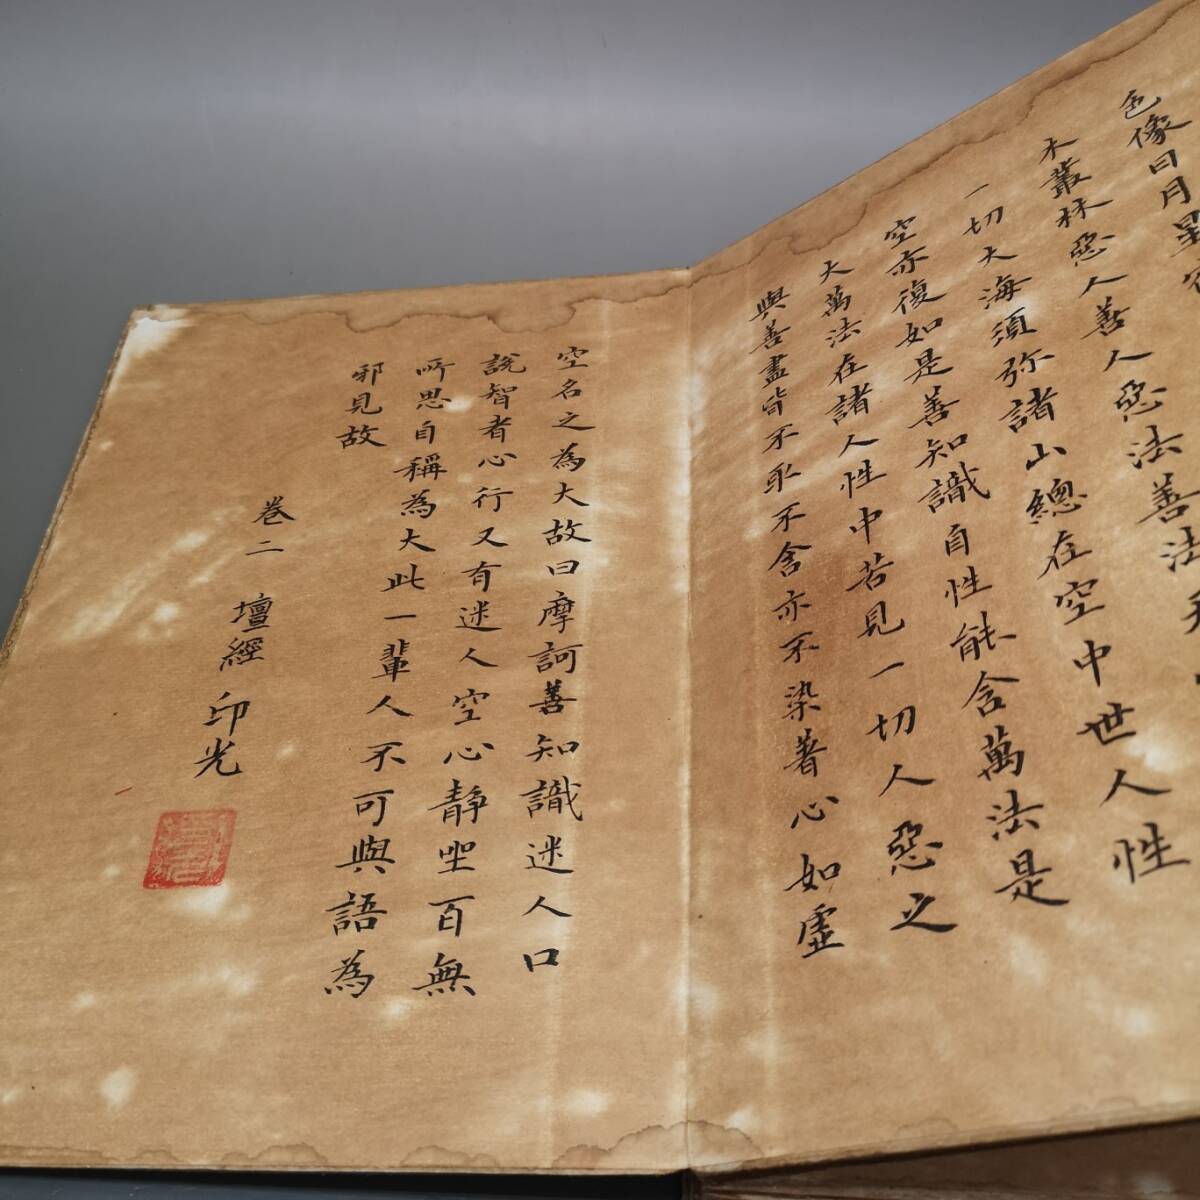 色像日月星
木叢林惡人善人惡法善法天
一切大海須弥諸山總在空中世人性
空亦復如是善知識自性能含萬法是
大萬法在諸人性中若見一切人惡之
與善盡皆不取不舍亦不染著心如虛
空名之為大故曰摩訶善知識迷人口
說智者心行又有迷人空心靜坐百無
所思自稱為大此一輩人不可與語為
邪見故
卷二 壇經 印光